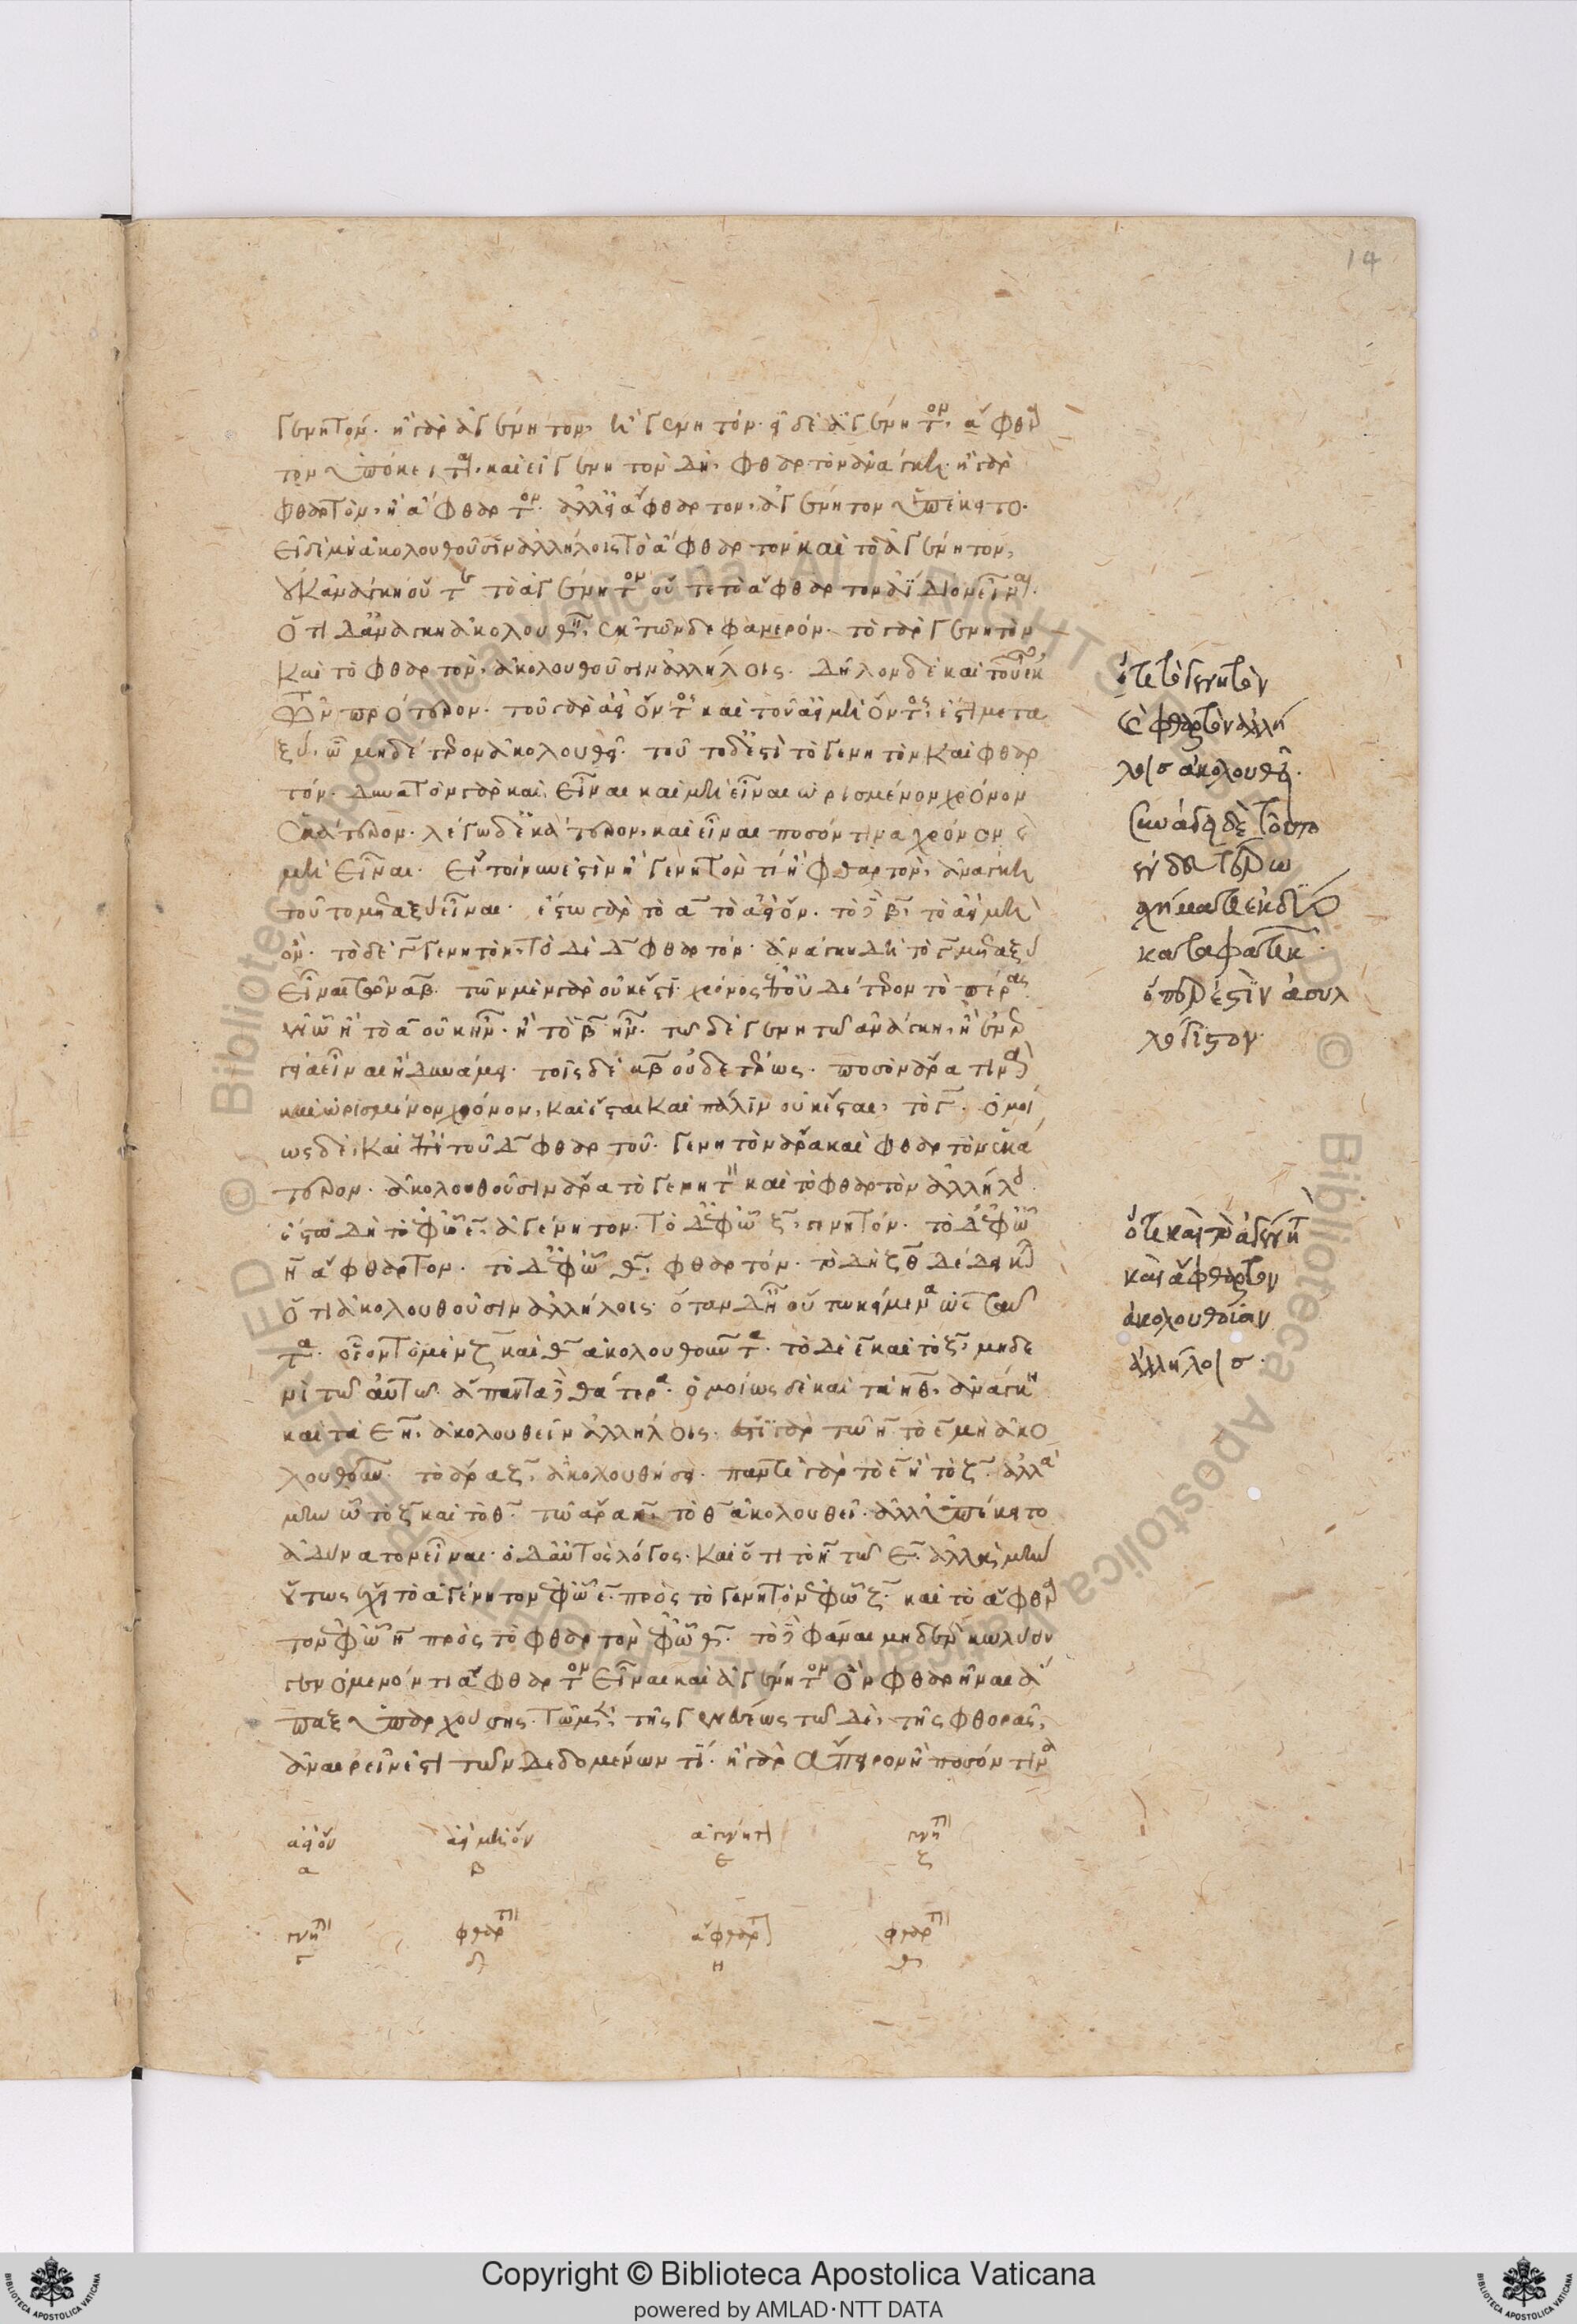 γενητόν. ἢ γὰρ ἀγένητον, ἢ γενητόν. εἰ δὲ ἀγένητον, ἄφθαρ
τον ὑπόκειται, καὶ εἰ γενητὸν δὴ, φθαρτὸν ἀνάγκη. ἢ γὰρ
φθαρτὸν, ἢ ἄφθαρτον. ἀλλ' εἰ ἄφθαρτον, ἀγένητον ὑπέκειτο.
εἰ δὲ μὴ ἀκολουθοῦσιν ἀλλήλοις τὸ ἄφθαρτον καὶ τὸ ἀγένητον,
οὐκ ἀνάγκη οὔτε τὸ ἀγένητον οὔτε τὸ ἄφθαρτον ἀΐδιον εἶναι.
ὅτι δ' ἀνάγκη ἀκολουθεῖν, ἐκ τῶνδε φανερόν. τὸ γὰρ γενητὸν
καὶ τὸ φθαρτὸν, ἀκολουθοῦσιν ἀλλήλοις. δῆλον δὲ καὶ τοῦτο ἐκ
τῶν πρότερον. τοῦ γὰρ ἀεὶ ὄντος καὶ τοῦ ἀεὶ μὴ ὄντος, ἐστὶ μετα
ξύ, ᾧ μηδέτερον ἀκολουθεῖ. τοῦτο δ' ἐστὶ τὸ γενητὸν καὶ φθαρ
τόν. δυνατὸν γὰρ καὶ εἶναι καὶ μὴ εἶναι ὡρισμένον χρόνον
ἑκάτερον. λέγω δ' ἑκάτερον, καὶ εἶναι ποσόν τινα χρόνον καὶ
μὴ εἶναι. εἰ τοίνυν ἐστὶν ἢ γενητόν τι ἢ φθαρτὸν, ἀνάγκη
τοῦτο μεταξὺ εἶναι. ἔστω γὰρ τὸ α τὸ ἀεὶ ὄν. τὸ δὲ β, τὸ ἀεὶ μὴ
ὄν. τὸ δὲ γ γενητὸν, τὸ δὲ δ φθαρτόν. ἀνάγκη δὴ τὸ γ μεταξὺ
εἶναι τῶν αβ. τῶν μὲν γὰρ οὐκ ἔστι χρόνος ἐπ' οὐδέτερον τὸ πέρας
ἐν ᾧ ἢ τὸ α οὐκ ἦν. ἢ τὸ β ἦν. τῷ δὲ γενητῷ ἀνάγκη, ἢ ἐνερ
γείᾳ εἶναι ἢ δυνάμει. τοῖς δὲ αβ οὐδετέρως. ποσὸν ἄρα τινὰ
καὶ ὡρισμένον χρόνον, καὶ ἔσται καὶ πάλιν οὐκ ἔσται, τὸ γ. ὁμοί
ως δὲ, καὶ ἐπὶ τοῦ δ φθαρτοῦ. γενητὸν ἄρα καὶ φθαρτὸν ἑκά
τερον. ἀκολουθοῦσιν ἄρα τὸ γενητὸν καὶ τὸ φθαρτὸν ἀλλήλοις.
ἔστω δὴ τὸ ἐφ' ᾧ ε, ἀγένητον. τὸ δ' ἐφ' ᾧ ζ, γενητόν. τὸ δ' ἐφ' ᾧ
η ἄφθαρτον. τὸ δ' ἐφ' ᾧ θ, φθαρτόν. τὰ δὴ ζθ δέδεικται
ὅτι ἀκολουθοῦσιν ἀλλήλοις. ὅταν δ' ᾖ οὕτω κείμενα ὡς ταῦ
τα. οἷον τὸ μὲν ζ καὶ θ ἀκολουθοῦντα. τὸ δὲ ε καὶ τὸ ζ, μηδε
νὶ τῷ αὐτῷ. ἅπαντι δὲ θάτερα. ὁμοίως δὲ καὶ τὰ ηθ, ἀνάγκη
καὶ τὰ εη, ἀκολουθεῖν ἀλλήλοις. ἔστω γὰρ τῷ η τὸ ε μὴ ἀκο
λουθοῦν. τὸ ἄρα ζ, ἀκολουθήσει. παντὶ γὰρ τὸ ε ἢ τὸ ζ. ἀλλὰ
μὴν ᾧ τὸ ζ καὶ τὸ θ. τῷ ἄρα η, τὸ θ ἀκολουθεῖ. ἀλλ' ὑπέκειτο
ἀδύνατον εἶναι. ὁ δ' αὐτὸς λόγος. καὶ ὅτι τὸ η τῷ ε. ἀλλὰ μὴν
οὕτως ἔχει τὸ ἀγένητον ἐφ' ᾧ ε. πρὸς τὸ γενητὸν ἐφ' ᾧ ζ. καὶ τὸ ἄφθαρ
τον ἐφ' ᾧ η πρὸς τὸ φθαρτὸν ἐφ' ᾧ θ. τὸ δὲ φάναι μηδὲν κωλύειν
γενόμενόν τι ἄφθαρτον εἶναι καὶ ἀγένητον ὂν φθαρῆναι ἅ
παξ ὑπαρχούσης τῷ μὲν, τῆς γενέσεως τῷ δὲ, τῆς φθορᾶς,
ἀναιρεῖν ἐστὶ τῶν δεδομένων τι. ἢ γὰρ ἄπειρον ἢ ποσόν τινα
ὅτι τὸ γενητὸν
καὶ φθαρτὸν ἀλλή
λοις ἀκολουθεῖ.
ὅτι καὶ τὸ ἀγένητον
καὶ ἄφθαρτον
ἀκολουθοῦσιν
ἀλλήλοις.
ἀεὶ ὄν ἀεὶ μὴ ὄν ἀγένητον γενητόν
α β ε ζ
γενητόν φθαρτόν ἄφθαρτον φθαρτόν
γ δ η θ
14
Copyright © Biblioteca Apostolica Vaticana
powered by AMLAD·NTT DATA